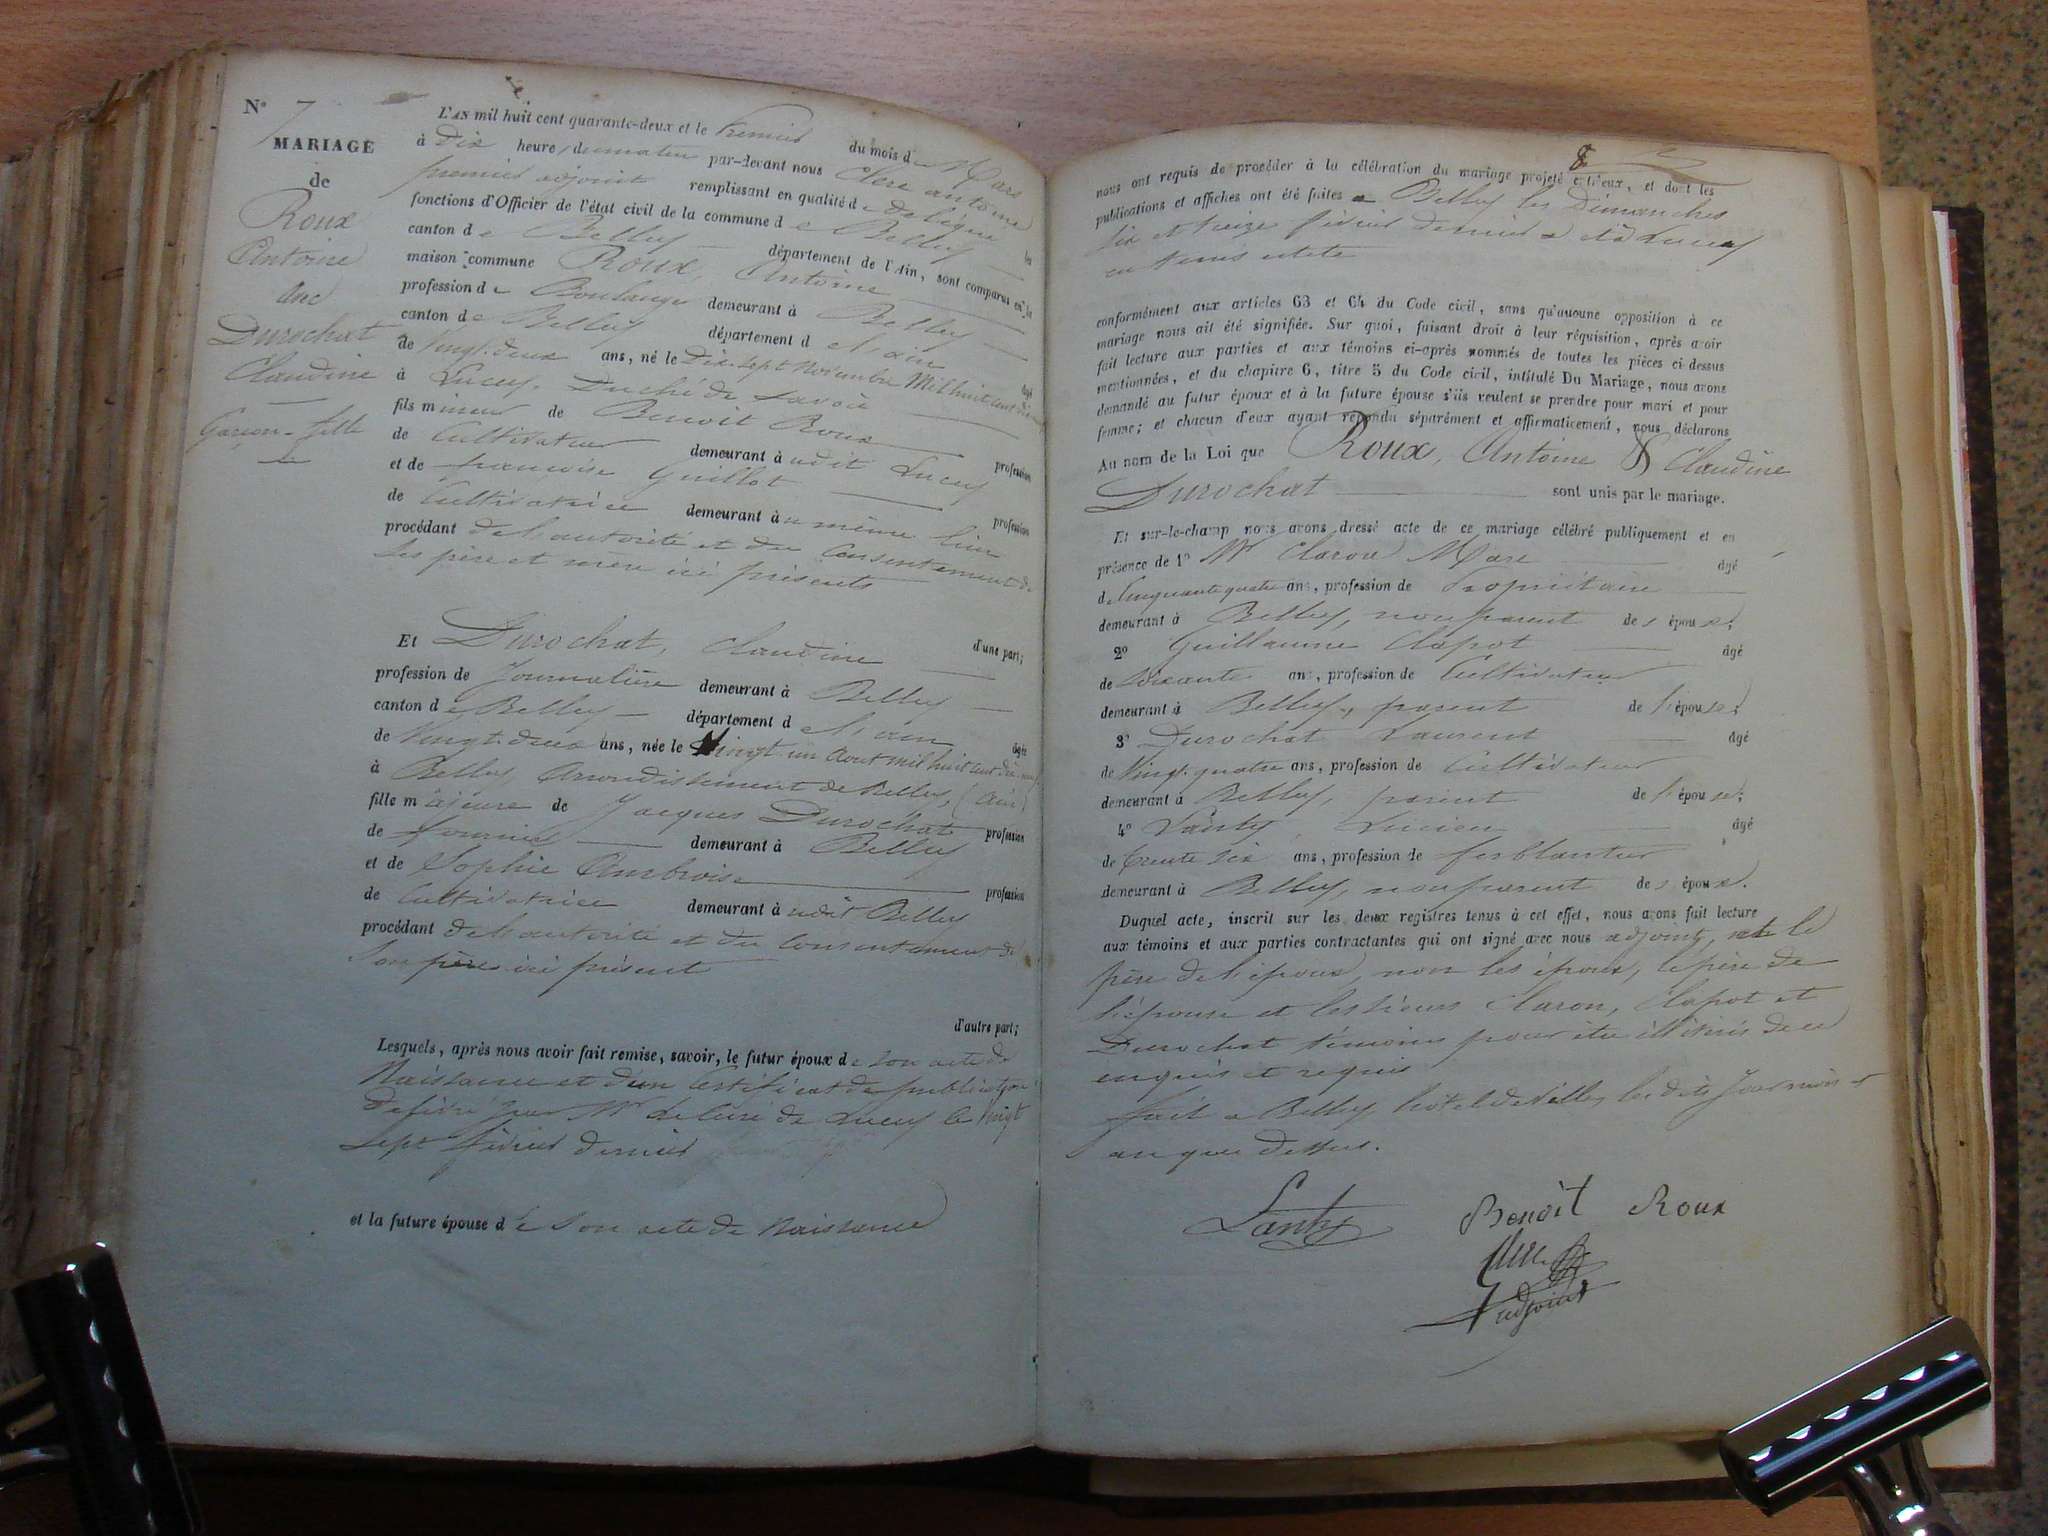 N° 7
MARIAGE
de
Roux
Antoine
avec
Durochat
Claudine
Garçon - fille
L'AN mil huit cent quarante-deux et le Premier du mois de Mars
à Dix heures du matin par-devant nous Clerc antoine
premier adjoint remplissant en qualité de délégué les
fonctions d'Officier de l'état civil de la commune de Belley
canton de Belley département de l'Ain, sont comparus en la
maison commune Roux, Antoine
profession de Boulanger demeurant à Belley
canton de Belley département de l'ain âgé
de Vingt-deux ans, né le Dix-sept Novembre Mil huit cent dix neuf
à Lucey, Duché de Savoie
fils mineur de Benoit Roux profession
de Cultivateur demeurant à udit Lucey
et de françoise Guillot profession
de Cultivatrice demeurant à u même lieu
procédant de l'autorité et du Consentement de
ses père et mère ici présents
d'une part;
Et Durochat, Claudine
profession de Journalière demeurant à Belley
canton de Belley département de l'ain âgée
de Vingt-deux ans, née le Vingt un aout mil huit cent dix neuf
à Belley Arrondissement de Belley, (ain)
fille majeure de Jacques Durochat profession
de fournier demeurant à Belley
et de Sophie Ambroise profession
de Cultivatrice demeurant à udit Belley
procédant de l'autorité et du Consentement de
son père ici présent
d'autre part;
Lesquels, après nous avoir fait remise, savoir, le futur époux de son acte de
Naissance et d'un Certificat de publication
délivré par Mr le Curé de Lucey le Vingt
sept février dernier
et la future épouse de son acte de Naissance
8
nous ont requis de procéder à la célébration du mariage projeté entr'eux, et dont les
publications et affiches ont été faites à Belley les Dimanches
six et treize février dernier et à Lucey
conformément aux articles 63 et 64 du Code civil, sans qu'aucune opposition à ce
mariage nous ait été signifiée. Sur quoi, faisant droit à leur réquisition, après avoir
fait lecture aux parties et aux témoins ci-après nommés de toutes les pièces ci dessus
mentionnées, et du chapitre 6, titre 5 du Code civil, intitulé Du Mariage, nous avons
demandé au futur époux et à la future épouse s'ils veulent se prendre pour mari et pour
femme; et chacun d'eux ayant répondu séparément et affirmativement, nous déclarons
Au nom de la Loi que Roux, Antoine & Claudine
Durochat sont unis par le mariage.
Et sur-le-champ nous avons dressé acte de ce mariage célébré publiquement et en
présence de 1° Mr Claron Marc âgé
de Cinquante quatre ans, profession de Propriétaire
demeurant à Belley, non parent des époux;
2° Guillaume Clapot âgé
de soixante ans, profession de Cultivateur
demeurant à Belley, parent de l'épouse;
3° Durochat Laurent âgé
de Vingt-quatre ans, profession de Cultivateur
demeurant à Belley, parent de l'épouse;
4° Lanty, Lucien âgé
de trente six ans, profession de ferblantier
demeurant à Belley, non parent des époux.
Duquel acte, inscrit sur les deux registres tenus à cet effet, nous avons fait lecture
aux témoins et aux parties contractantes qui ont signé avec nous adjoint, et le
père de l'époux, non les époux, le père de
l'épouse et les sieurs Claron, Clapot et
Durochat témoins pour être illitérés de ce
enquis et requis
fait à Belley hôtel de Ville, les dits jour mois et
an que dessus.
Lanty Benoit Roux
Clerc
adjoint